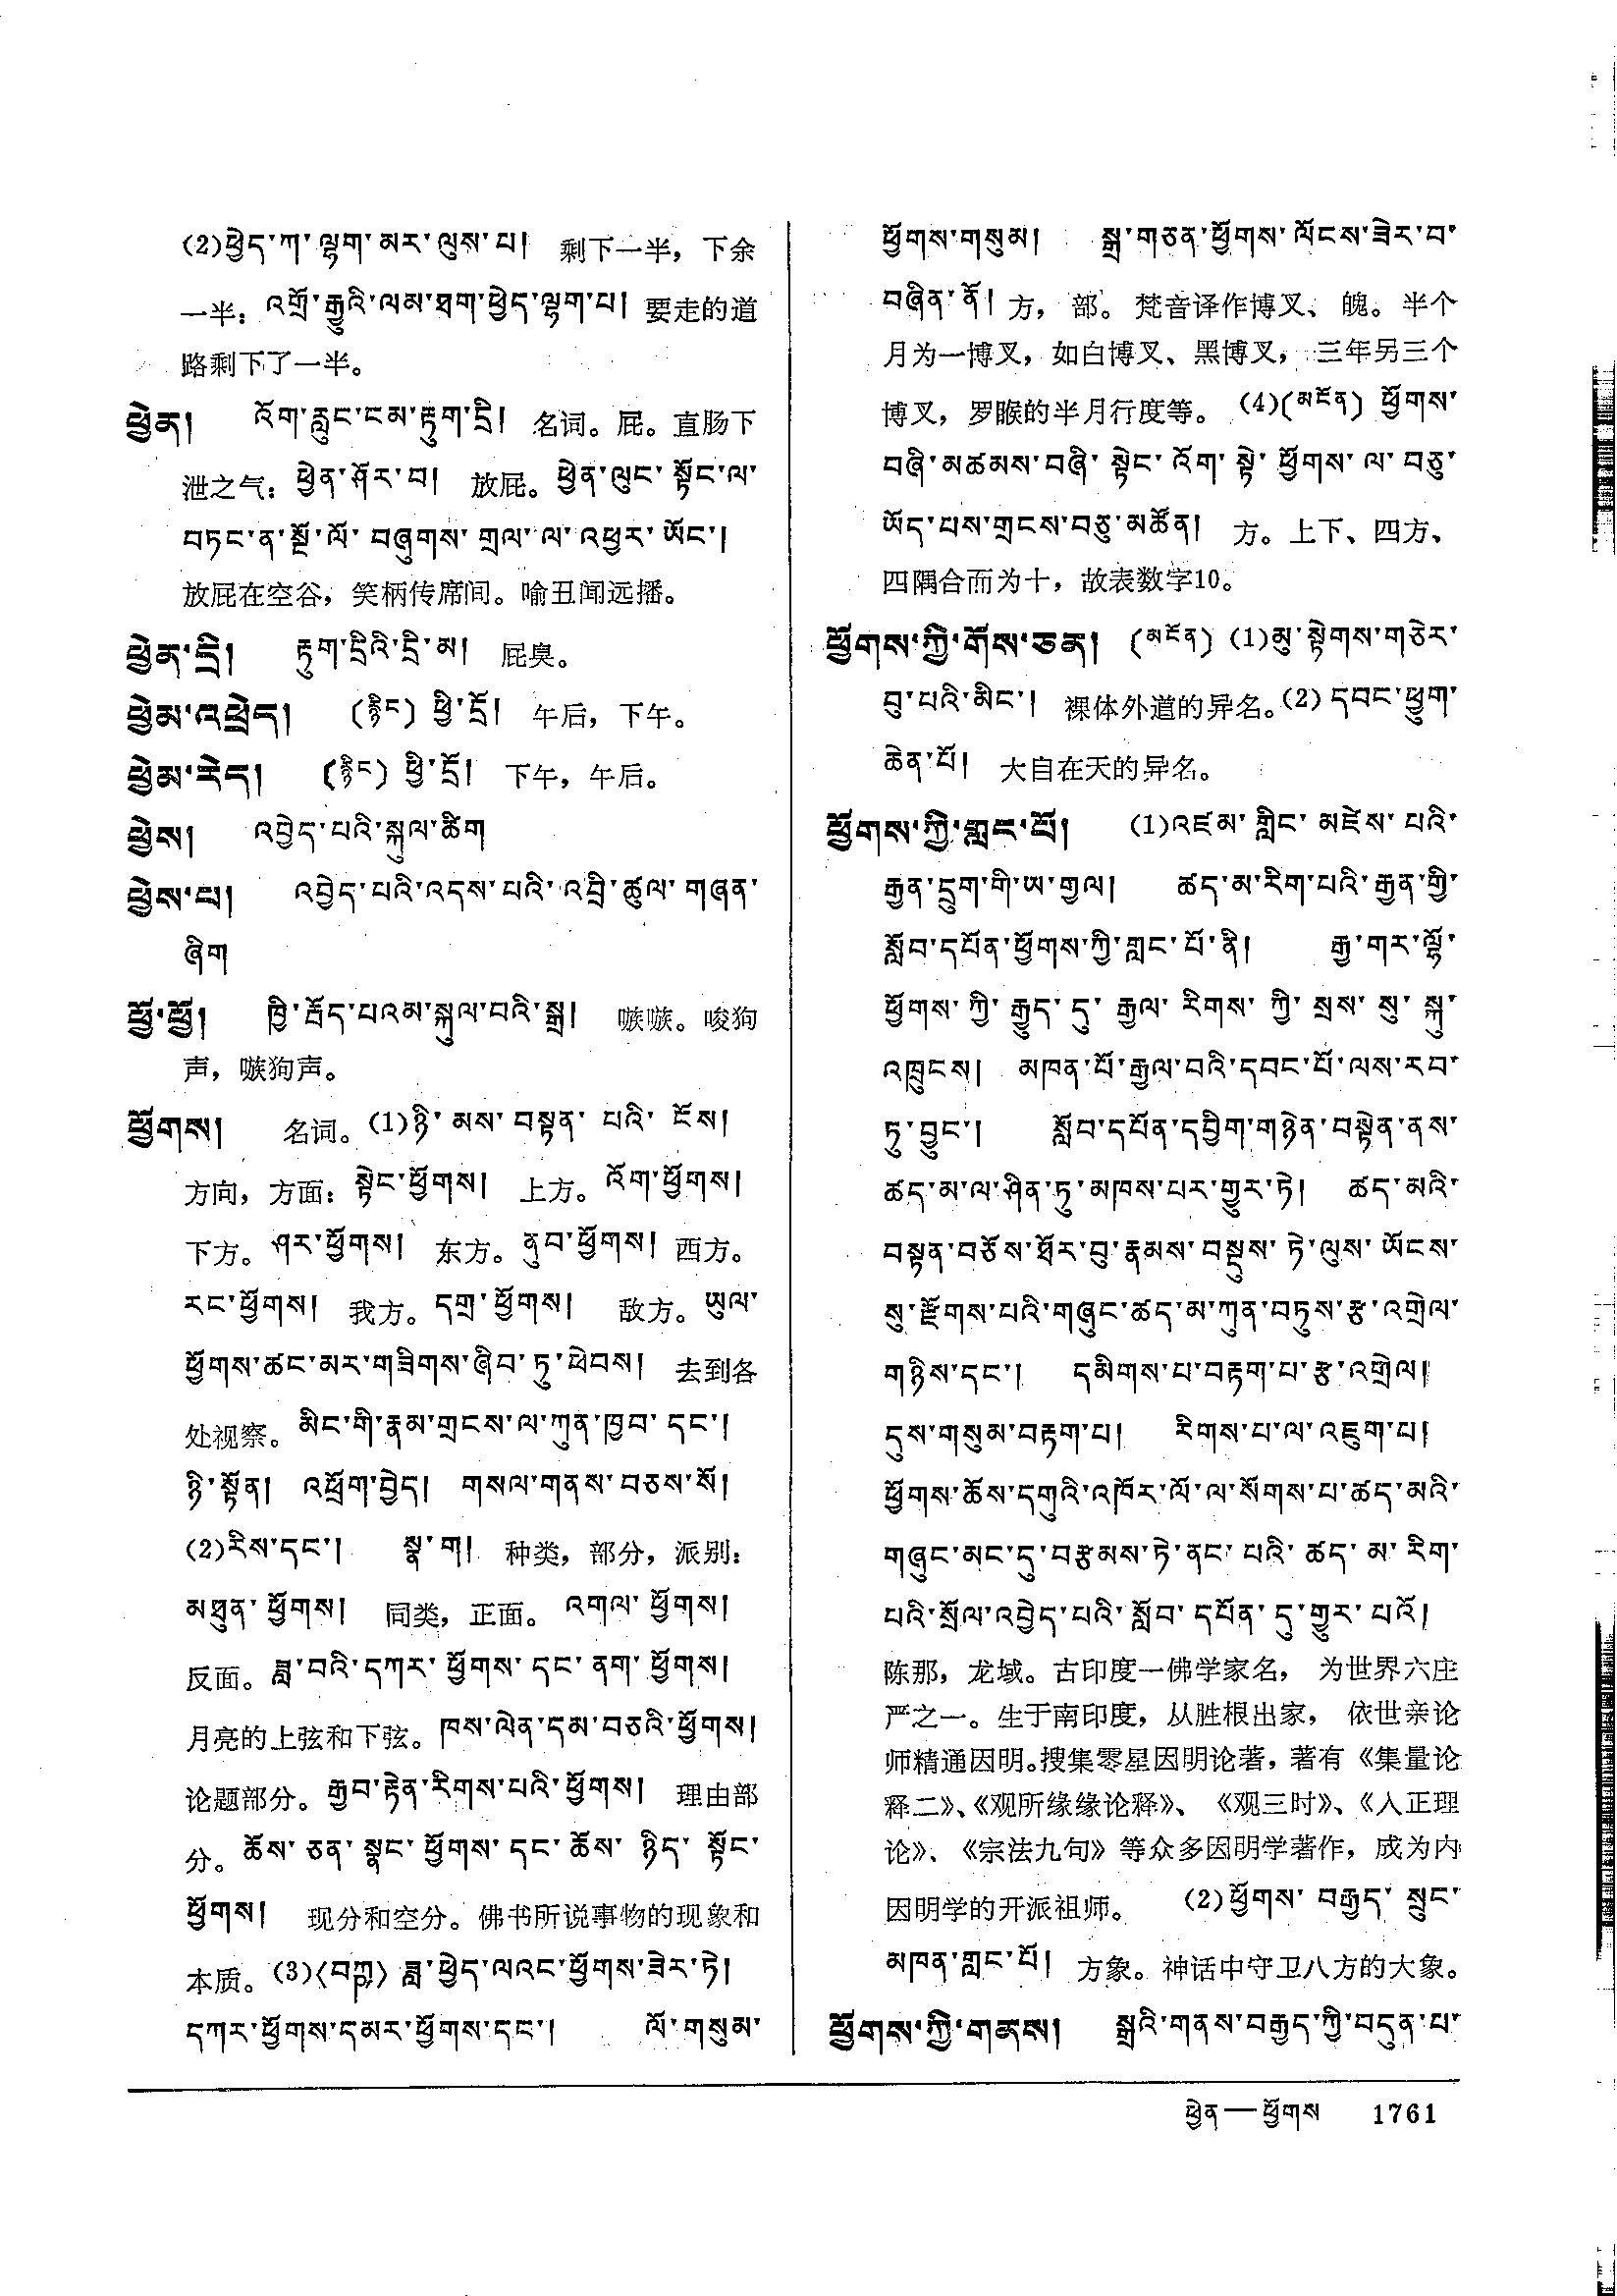 (2)ཕྱེད་ཀ་ལྷག་མར་ལུས་པ། 剩下一半，下余
一半：འགྲོ་རྒྱུའི་ལམ་ཐག་ཕྱེད་ལྷག་པ། 要走的道
路剩下了一半。
ཕྱེན། འོག་རླུང་ངམ་རྟུག་དྲི། 名词。屁。直肠下
泄之气：ཕྱེན་ཤོར་བ། 放屁。ཕྱེན་ལུང་སྟོང་ལ་
བཏང་ན་སྔོ་ལོ་བཞུགས་གྲལ་ལ་འཕྱར་ཡོང་།
放屁在空谷，笑柄传席间。喻丑闻远播。
ཕྱེན་དྲི། རྟུག་དྲིའི་དྲི་མ། 屁臭。
ཕྱེམ་འཕྲེད། (རྙིང) ཕྱི་དྲོ། 午后，下午。
ཕྱེམ་རེད། (རྙིང) ཕྱི་དྲོ། 下午，午后。
ཕྱེས། འབྱེད་པའི་སྐུལ་ཚིག
ཕྱེས་པ། འབྱེད་པའི་འདས་པའི་འབྲི་ཚུལ་གཞན་
ཞིག
ཕྱོ་ཕྱོ། ཁྱི་རྦོད་པའམ་སྐུལ་བའི་སྒྲ། 嗾嗾。唆狗
声，嗾狗声。
ཕྱོགས། 名词。(1)ཉི་མས་བསྟན་པའི་ངོས།
方向，方面：སྟེང་ཕྱོགས། 上方。འོག་ཕྱོགས།
下方。ཤར་ཕྱོགས། 东方。ནུབ་ཕྱོགས། 西方。
རང་ཕྱོགས། 我方。དགྲ་ཕྱོགས། 敌方。ཡུལ་
ཕྱོགས་ཚང་མར་གཟིགས་ཞིབ་ཏུ་ཕེབས། 去到各
处视察。མིང་གི་རྣམ་གྲངས་ལ་ཀུན་ཁྱབ་དང་།
ཉི་སྟོན། འཕྲོག་བྱེད། གསལ་གནས་བཅས་སོ།
(2)རིས་དང་། སྣ་ག། 种类，部分，派别：
མཐུན་ཕྱོགས། 同类，正面。འགལ་ཕྱོགས།
反面。ཟླ་བའི་དཀར་ཕྱོགས་དང་ནག་ཕྱོགས།
月亮的上弦和下弦。ཁས་ལེན་དམ་བཅའི་ཕྱོགས།
论题部分。རྒྱབ་རྟེན་རིགས་པའི་ཕྱོགས། 理由部
分。ཆོས་ཅན་སྣང་ཕྱོགས་དང་ཆོས་ཉིད་སྟོང་
ཕྱོགས། 现分和空分。佛书所说事物的现象和
本质。(3)〈བཀྵ〉ཟླ་ཕྱེད་ལའང་ཕྱོགས་ཟེར་ཏེ།
དཀར་ཕྱོགས་དམར་ཕྱོགས་དང་། ལོ་གསུམ་
ཕྱོགས་གསུམ། སྒྲ་གཅན་ཕྱོགས་ལོངས་ཟེར་བ་
བཞིན་ནོ། 方，部。梵音译作博叉、魄。半个
月为一博叉，如白博叉、黑博叉，三年另三个
博叉，罗睺的半月行度等。(4)(མངོན) ཕྱོགས་
བཞི་མཚམས་བཞི་སྟེང་འོག་སྟེ་ཕྱོགས་ལ་བཅུ་
ཡོད་པས་གྲངས་བཅུ་མཚོན། 方。上下、四方、
四隅合而为十，故表数字10。
ཕྱོགས་ཀྱི་གོས་ཅན། (མངོན) (1)མུ་སྟེགས་གཅེར་
བུ་པའི་མིང་། 裸体外道的异名。(2) དབང་ཕྱུག་
ཆེན་པོ། 大自在天的异名。
ཕྱོགས་ཀྱི་གླང་པོ། (1)འཛམ་གླིང་མཛེས་པའི་
རྒྱན་དྲུག་གི་ཡ་གྱལ། ཚད་མ་རིག་པའི་རྒྱན་གྱི་
སློབ་དཔོན་ཕྱོགས་ཀྱི་གླང་པོ་ནི། རྒྱ་གར་ལྷོ་
ཕྱོགས་ཀྱི་རྒྱུད་དུ་རྒྱལ་རིགས་ཀྱི་སྲས་སུ་སྐུ་
འཁྲུངས། མཁན་པོ་རྒྱལ་བའི་དབང་པོ་ལས་རབ་
ཏུ་བྱུང་། སློབ་དཔོན་དབྱིག་གཉེན་བསྟེན་ནས་
ཚད་མ་ལ་ཤིན་ཏུ་མཁས་པར་གྱུར་ཏེ། ཚད་མའི་
བསྟན་བཅོས་ཐོར་བུ་རྣམས་བསྡུས་ཏེ་ལུས་ཡོངས་
སུ་རྫོགས་པའི་གཞུང་ཚད་མ་ཀུན་བཏུས་རྩ་འགྲེལ་
གཉིས་དང་། དམིགས་པ་བརྟག་པ་རྩ་འགྲེལ།
དུས་གསུམ་བརྟག་པ། རིགས་པ་ལ་འཇུག་པ།
ཕྱོགས་ཆོས་དགུའི་འཁོར་ལོ་ལ་སོགས་པ་ཚད་མའི་
གཞུང་མང་དུ་བརྩམས་ཏེ་ནང་པའི་ཚད་མ་རིག་
པའི་སྲོལ་འབྱེད་པའི་སློབ་དཔོན་དུ་གྱུར་པའོ།
陈那，龙域。古印度一佛学家名，为世界六庄
严之一。生于南印度，从胜根出家，依世亲论
师精通因明。搜集零星因明论著，著有《集量论
释二》、《观所缘缘论释》、《观三时》、《入正理
论》、《宗法九句》等众多因明学著作，成为内
因明学的开派祖师。 (2)ཕྱོགས་བརྒྱད་སྲུང་
མཁན་གླང་པོ། 方象。神话中守卫八方的大象。
ཕྱོགས་ཀྱི་གནས། སྒྲའི་གནས་བརྒྱད་ཀྱི་བདུན་པ་
ཕྱེན—ཕྱོགས 1761